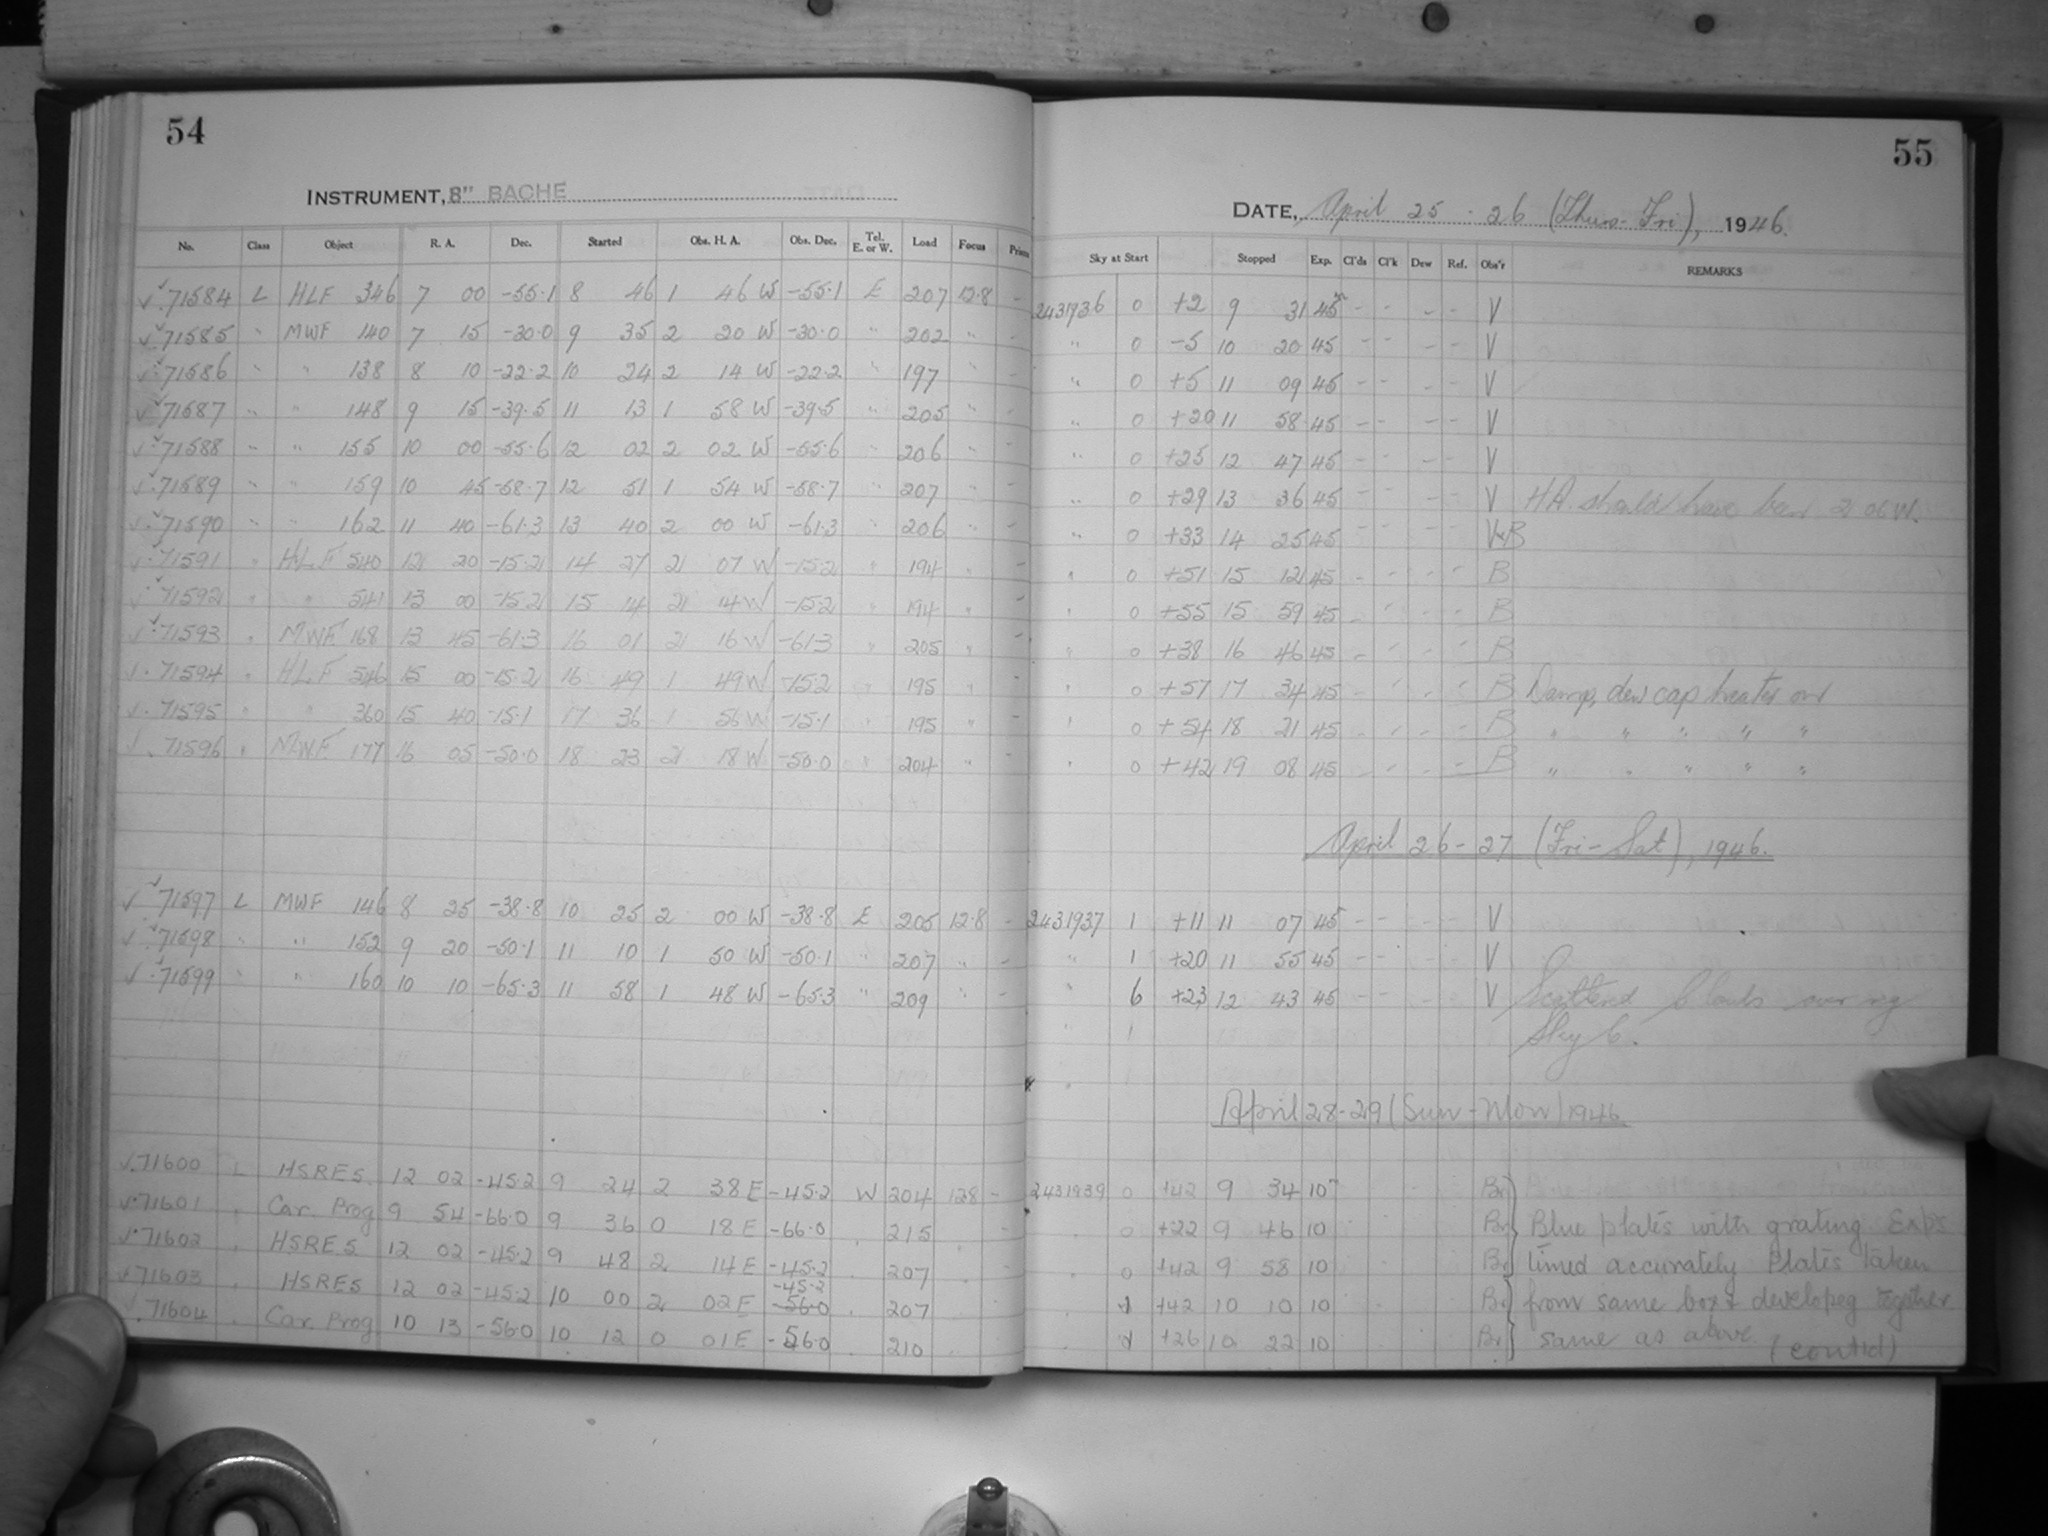 54
INSTRUMENT, 8" BACHE
No. Class Object R. A. Dec. Started Obs. H. A. Obs. Dec. Tel. E. or W. Load Focus Prism
71584 L HLF 346 7 00 -55.1 8 46 1 46 W -55.1 E 207 12.8 -
71585 " MWF 140 7 15 -30.0 9 35 2 20 W -30.0 " 202 " -
71586 " " 138 8 10 -22.2 10 24 2 14 W -22.2 " 197 " -
71587 " " 148 9 15 -39.5 11 13 1 58 W -39.5 " 205 " -
71588 " " 155 10 00 -55.6 12 02 2 02 W -55.6 " 206 " -
71589 " " 159 10 45 -58.7 12 51 1 54 W -58.7 " 207 " -
71590 " " 162 11 40 -61.3 13 40 2 00 W -61.3 " 206 " -
71591 " HLF 540 12 20 -15.2 14 27 2 07 W -15.2 " 194 " -
71592 " " 541 13 00 -15.2 15 14 2 14 W -15.2 " 194 " -
71593 " MWF 168 13 45 -61.3 16 01 2 16 W -61.3 " 205 " -
71594 " HLF 546 15 00 -15.2 16 49 1 49 W -15.2 " 195 " -
71595 " " 360 15 40 -15.1 17 36 1 56 W -15.1 " 195 " -
71596 " MWF 177 16 05 -50.0 18 23 2 18 W -50.0 " 204 " -
71597 L MWF 146 8 25 -38.8 10 25 2 00 W -38.8 E 205 12.8 -
71598 " " 152 9 20 -50.1 11 10 1 50 W -50.1 " 207 " -
71599 " " 160 10 10 -65.3 11 58 1 48 W -65.3 " 209 " -
71600 L HSRES 12 02 -45.2 9 24 2 38 E -45.2 W 204 12.8 -
71601 " Car. Prog 9 54 -66.0 9 36 0 18 E -66.0 " 215
71602 " HSRES 12 02 -45.2 9 48 2 14 E -45.2 " 207
71603 " HSRES 12 02 -45.2 10 00 2 02 E -45.2 -56.0 " 207
71604 " Car. Prog 10 13 -56.0 10 12 0 01 E -56.0 210
55
DATE, April 25-26 (Thurs-Fri), 1946.
Sky at Start Stopped Exp. Cl'ds Cl'k Dew Ref. Obs'r REMARKS
2431936 0 +2 9 31 45m - - - - V
" 0 -5 10 20 45 - - - - V
" 0 +5 11 09 45 - - - - V
" 0 +20 11 58 45 - - - - V
" 0 +25 12 47 45 - - - - V
" 0 +29 13 36 45 - - - - V HA. should have been 2 06 W.
" 0 +33 14 25 45 - - - - V+B
" 0 +51 15 12 45 - - - - B
" 0 +55 15 59 45 - - - - B
" 0 +38 16 46 45 - - - - B
" 0 +57 17 34 45 - - - - B Damp, dew cap heater on
" 0 +54 18 21 45 - - - - B " " " " "
" 0 +42 19 08 45 - - - - B " " " " "
April 26-27 (Fri-Sat), 1946.
2431937 1 +11 11 07 45 - - - - V
" 1 +20 11 55 45 - - - - V
" 6 +23 12 43 45 - - - - V Scattered Clouds over
Sky 6.
April 28-29 (Sun-Mon) 1946
2431939 0 +42 9 34 10m Br
0 +22 9 46 10 Br Blue plates with grating Exps
0 +42 9 58 10 Br timed accurately Plates taken
+42 10 10 10 Br from same box & developed together
+26 10 22 10 Br same as above
(contd)